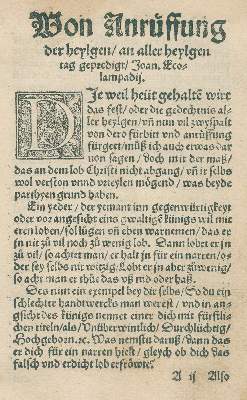 Von Anrüffung
der heylgen/ an aller heylgen
tag gepredigt/ Joan. Eco-
lampadij.
DJe weil heüt gehaltẽ wirt
das fest/ oder die gedechtnis al-
ler heylgen/ vñ nun vil zwyspalt
von dero fürbitt vnd anrüffung
fürgett/ můß ich auch etwas dar
uon sagen/ doch mit der maß/
das an dem lob Christi nicht abgang/ vñ ir selbs
wol verston vnnd vrteylen mögend/ was beyde
partheyen grund haben.
Ein yeder/ der yemant inn gegenwürtigkeyt
oder vor angesicht eins gwaltigẽ künigs wil mit
eren loben/ sol lůgen vñ eben warnemen/ das er
jn nit zů vil noch zů wenig lob. Dann lobet er jn
zů vil/ so achtet man/ er halt jn für ein narren/ o-
der sey selbs nit witzig/ Lobt er jn aber zů wenig/
so acht man er thüe das vß nid oder haß.
Des nun ein exempel bey dir selbs/ So du ein
schlechter handtwercks man werest/ vnd in an-
gsicht des künigs nennet einer dich mit fürstli-
chen titeln/ als/ Vnüberwintlich/ Durchlüchtig/
Hochgeborn.ꝛc. Was nemstu daruß/ dann das
er dich für ein narren hielt/ gleych ob dich das
falsch vnd erdicht lob erfröwte.
A ij Also